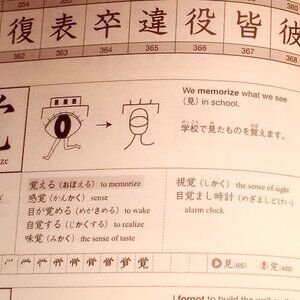 354
復 表 卒 違 役 皆 彼
362 363 364 365 366 367 368
We memorize what we see
(見) in school.
がっこう み おぼ
学校で見たものを覚えます。
覚える (おぼえる) to memorize
感覚 (かんかく) sense
目が覚める (めがさめる) to wake
自覚する (じかくする) to realize
味覚 (みかく) the sense of taste
視覚 (しかく) the sense of sight
目覚まし時計 (めざましどけい)
alarm clock
覚
見(65) 党(400)
I forgot to build the wall